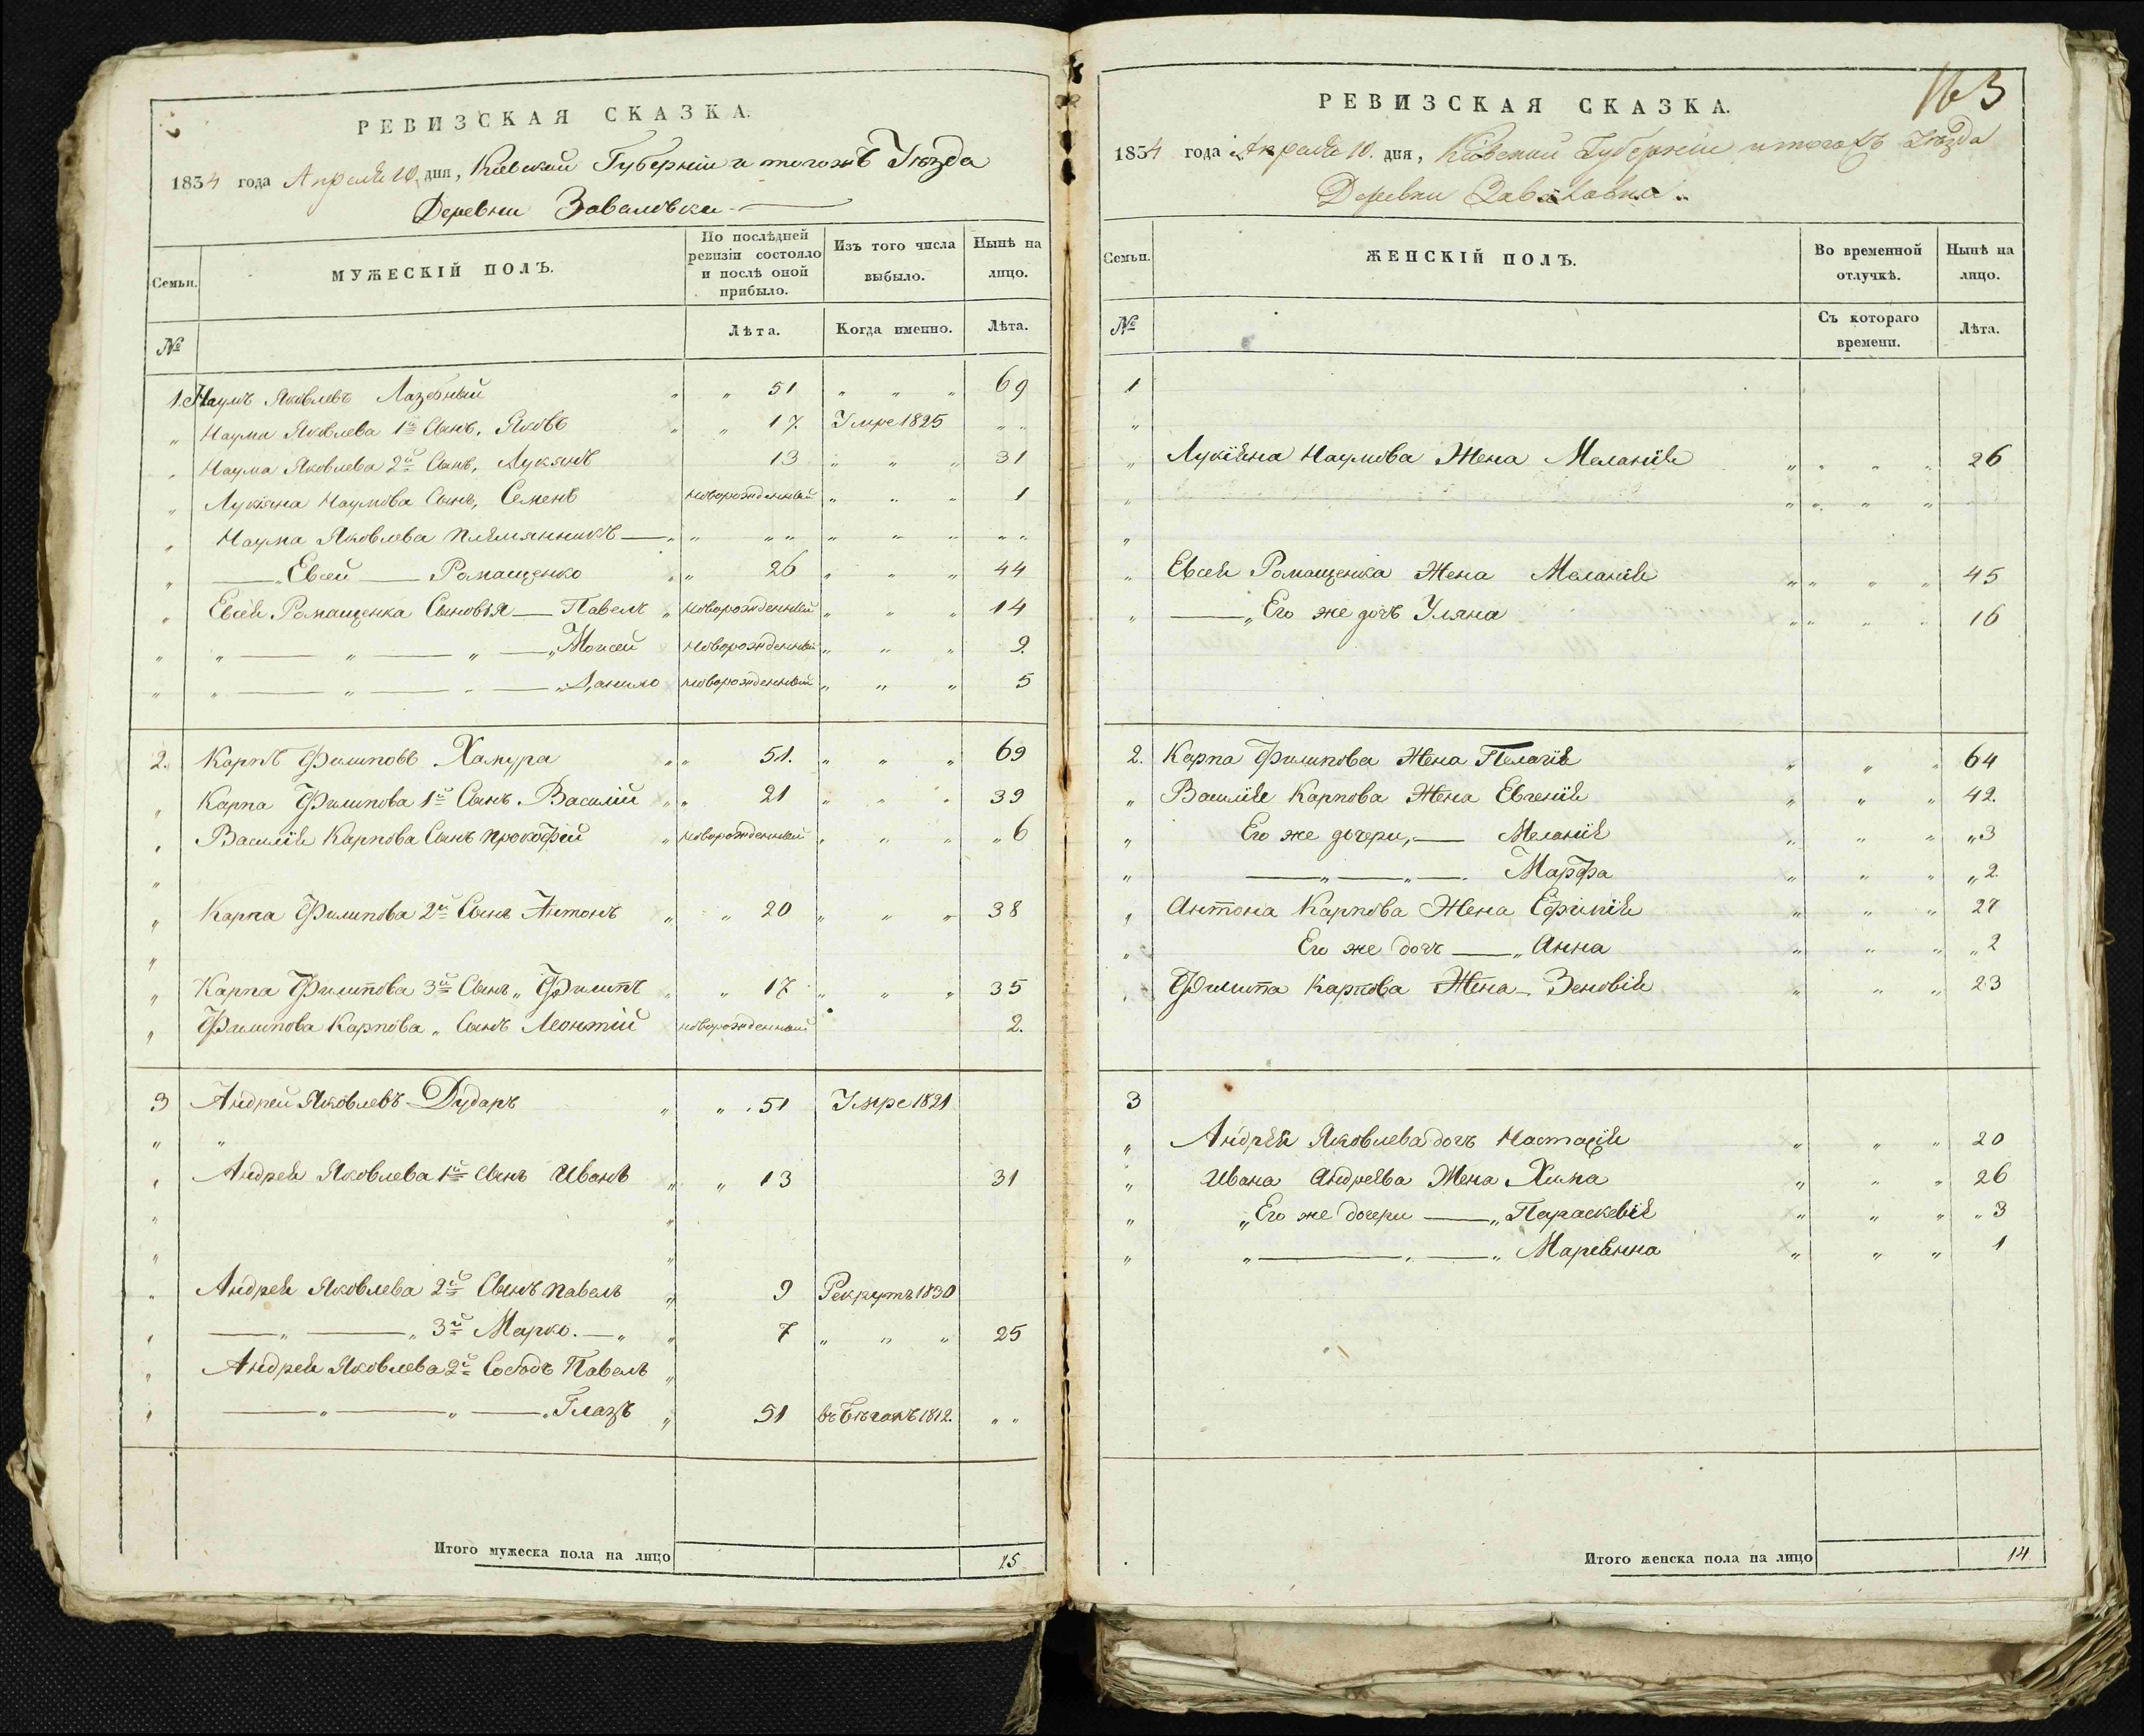 РЕВИЗСКАЯ СКАЗКА.
1834 года Апреля 10 дня, Кіевской Губерніи и тогожъ Уѣзда
Деревни Заваловки
Семьи.
МУЖЕСКІЙ ПОЛЪ.
По послѣдней ревизіи состояло и послѣ оной прибыло.
Изъ того числа выбыло.
Нынѣ на лицо.
№
Лѣта.
Когда именно.
Лѣта.
1. Наумъ Яковлевъ Лазебный " " 51 " " " 69
" Наума Яковлева 1й Сынъ, Яковъ " " 17 Умре 1825 " "
" Наума Яковлева 2й Сынъ, Лукянъ 13 " " " 31
" Лукіяна Наумова Сынъ, Семенъ новорожденный " " " 1
" Наума Яковлева племянникъ — " " " " " " " " "
" — " Евсей — Ромащенко " " 26 " " " 44
" Евсея Ромащенка Сыновія — Павелъ " новорожденный " " " 14
" " — " — " — " Моисей новорожденный " " " 9.
" " — " — " — " Данило новорожденный " " " 5
2. Карпъ Филиповъ Хамура " " 51. " " " 69
" Карпа Филипова 1й Сынъ Василій " " 21 " " " 39
" Василія Карпова Сынъ Прокофій " новорожденный " " " " 6
"
" Карпа Филипова 2й Сынъ Антонъ " " 20 " " " 38
"
" Карпа Филипова 3й Сынъ " Филипъ " " 17 " " " 35
" Филипова Карпова " Сынъ Леонтій новорожденный 2.
3 Андрей Яковлевъ Дударъ " " 51 Умре 1821
" "
" Андрея Яковлева 1й Сынъ Иванъ " " 13 31
" "
" "
" Андрея Яковлева 2й Сынъ Павелъ " 9 Рекрутъ 1830
" — " — " 3й Марко. — " " 7 " " " 25
" Андрея Яковлева 2й Сосѣдъ Павелъ "
" — " — " — " Глазъ " 51 въ бѣгахъ 1812. " "
Итого мужеска пола на лицо 15
163
РЕВИЗСКАЯ СКАЗКА.
1834 года Апреля 10. дня, Кіевской Губерніи и тогожъ Уѣзда
Деревни Заваловки
Семьи.
ЖЕНСКІЙ ПОЛЪ.
Во временной отлучкѣ.
Нынѣ на лицо.
№
Съ котораго времени.
Лѣта.
1
"
" Лукіяна Наумова Жена Меланія " " " " 26
" " " " "
"
" Евсея Ромащенка Жена Меланія " " " " 45
" — " Его же дочъ Уляна " " " " 16
2. Карпа Филипова Жена Пелагія " " " 64
" Василія Карпова Жена Евгенія " " " 42.
" Его же дочери, — Меланія " " " " 3
" — " — " — . Марфа " " " " 2.
" Антона Карпова Жена Ефимія " " " 27
" Его же дочъ — " Анна " " " " 2
" Филипа Карпова Жена Зеновія " " " 23
3
" Андрея Яковлева дочъ Настасія " " " 20
" Ивана Андреева Жена Хима " " " 26
" " Его же дочери — " Параскевія " " " " 3
" " — " — " Маревина " " " 1
Итого женска пола на лицо 14